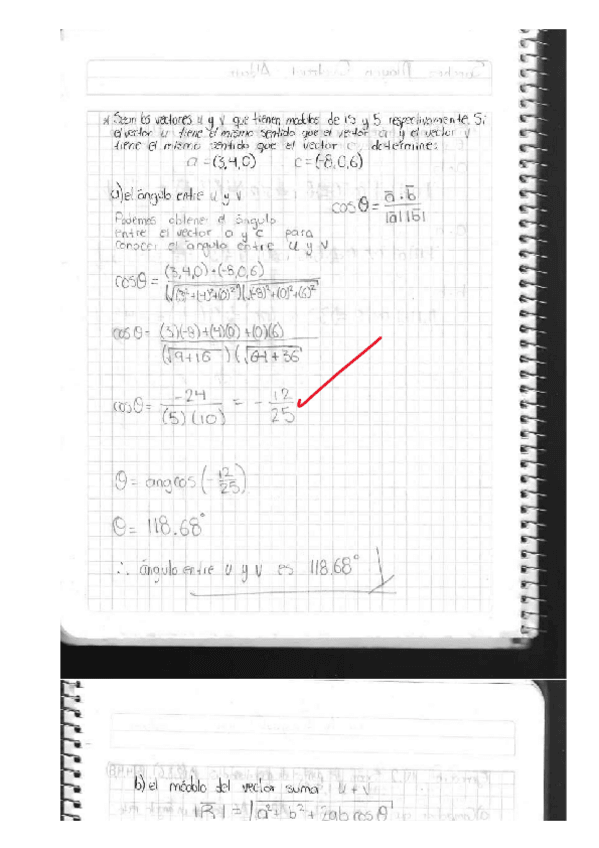 Sean los vectores u y v que tienen modulos de 15 y 5 respectivamente. Si
el vector u tiene el mismo sentido que el vector a y el vector v
tiene el mismo sentido que el vector c, determine:
a = (3,4,0) c = (-8,0,6)
a) el ángulo entre u y v
cosθ = a̅ · b̅ / |a̅||b̅|
Podemos obtener el ángulo
entre el vector a y c para
conocer el angulo entre u y v
cosθ = (3,4,0)·(-8,0,6) / √(3)²+(4)²+(0)² √(-8)²+(0)²+(6)²
cosθ = (3)(-8)+(4)(0)+(0)(6) / (√9+16)(√64+36)
cosθ = -24 / (5)(10) = -12/25
θ = angcos(-12/25)
θ = 118.68°
∴ ángulo entre u y v es 118.68°
b) el módulo del vector suma u + v
|R| = √a²+b²+2ab cosθ